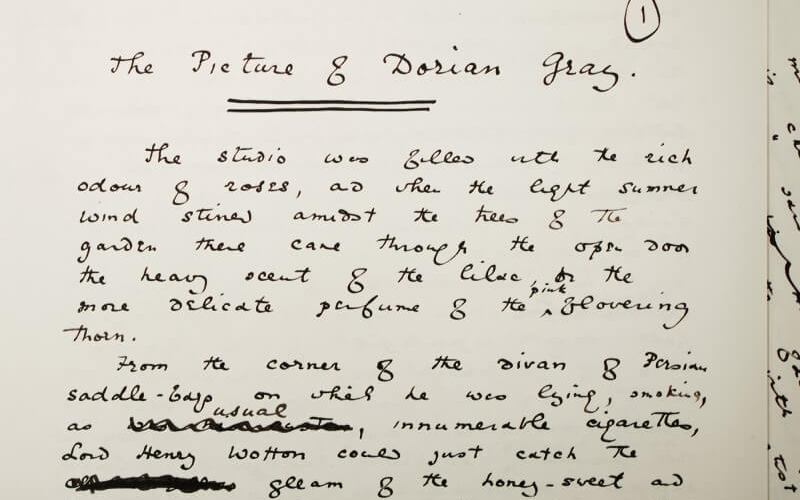 1
The Picture of Dorian Gray.
The studio was filled with the rich
odour of roses, and when the light summer
wind stirred amidst the trees of the
garden there came through the open door
the heavy scent of the lilac, or the
pink
more delicate perfume of the flowering
thorn.
From the corner of the divan of Persian
saddle-bags on which he was lying, smoking,
usual
as , innumerable cigarettes,
Lord Henry Wotton could just catch the
gleam of the honey-sweet and